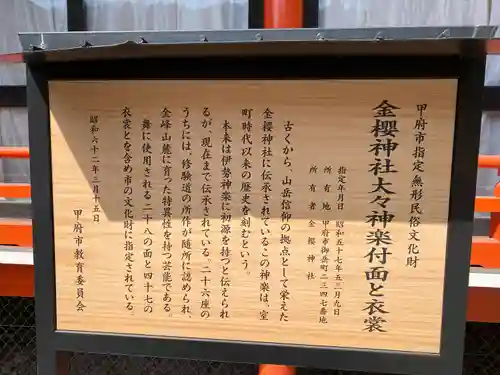 甲府市指定無形民俗文化財
金櫻神社太々神楽付面と衣裳
指定年月日 昭和五十七年五月九日
所有地 甲府市御岳町二三四七番地
所有者 金櫻神社
古くから、山岳信仰の拠点として栄えた
金櫻神社に伝承されているこの神楽は、室
町時代以来の歴史を刻むという。
本来は伊勢神楽に初源を持つと伝えられ
るが、現在まで伝承されている。二十六座の
うちには、修験道の所作が随所に認められ、
金峰山麓に育った特異性を持つ芸能である。
舞に使用される二十八の面と四十七の
衣裳とを含め市の文化財に指定されている。
昭和六十二年三月十五日
甲府市教育委員会